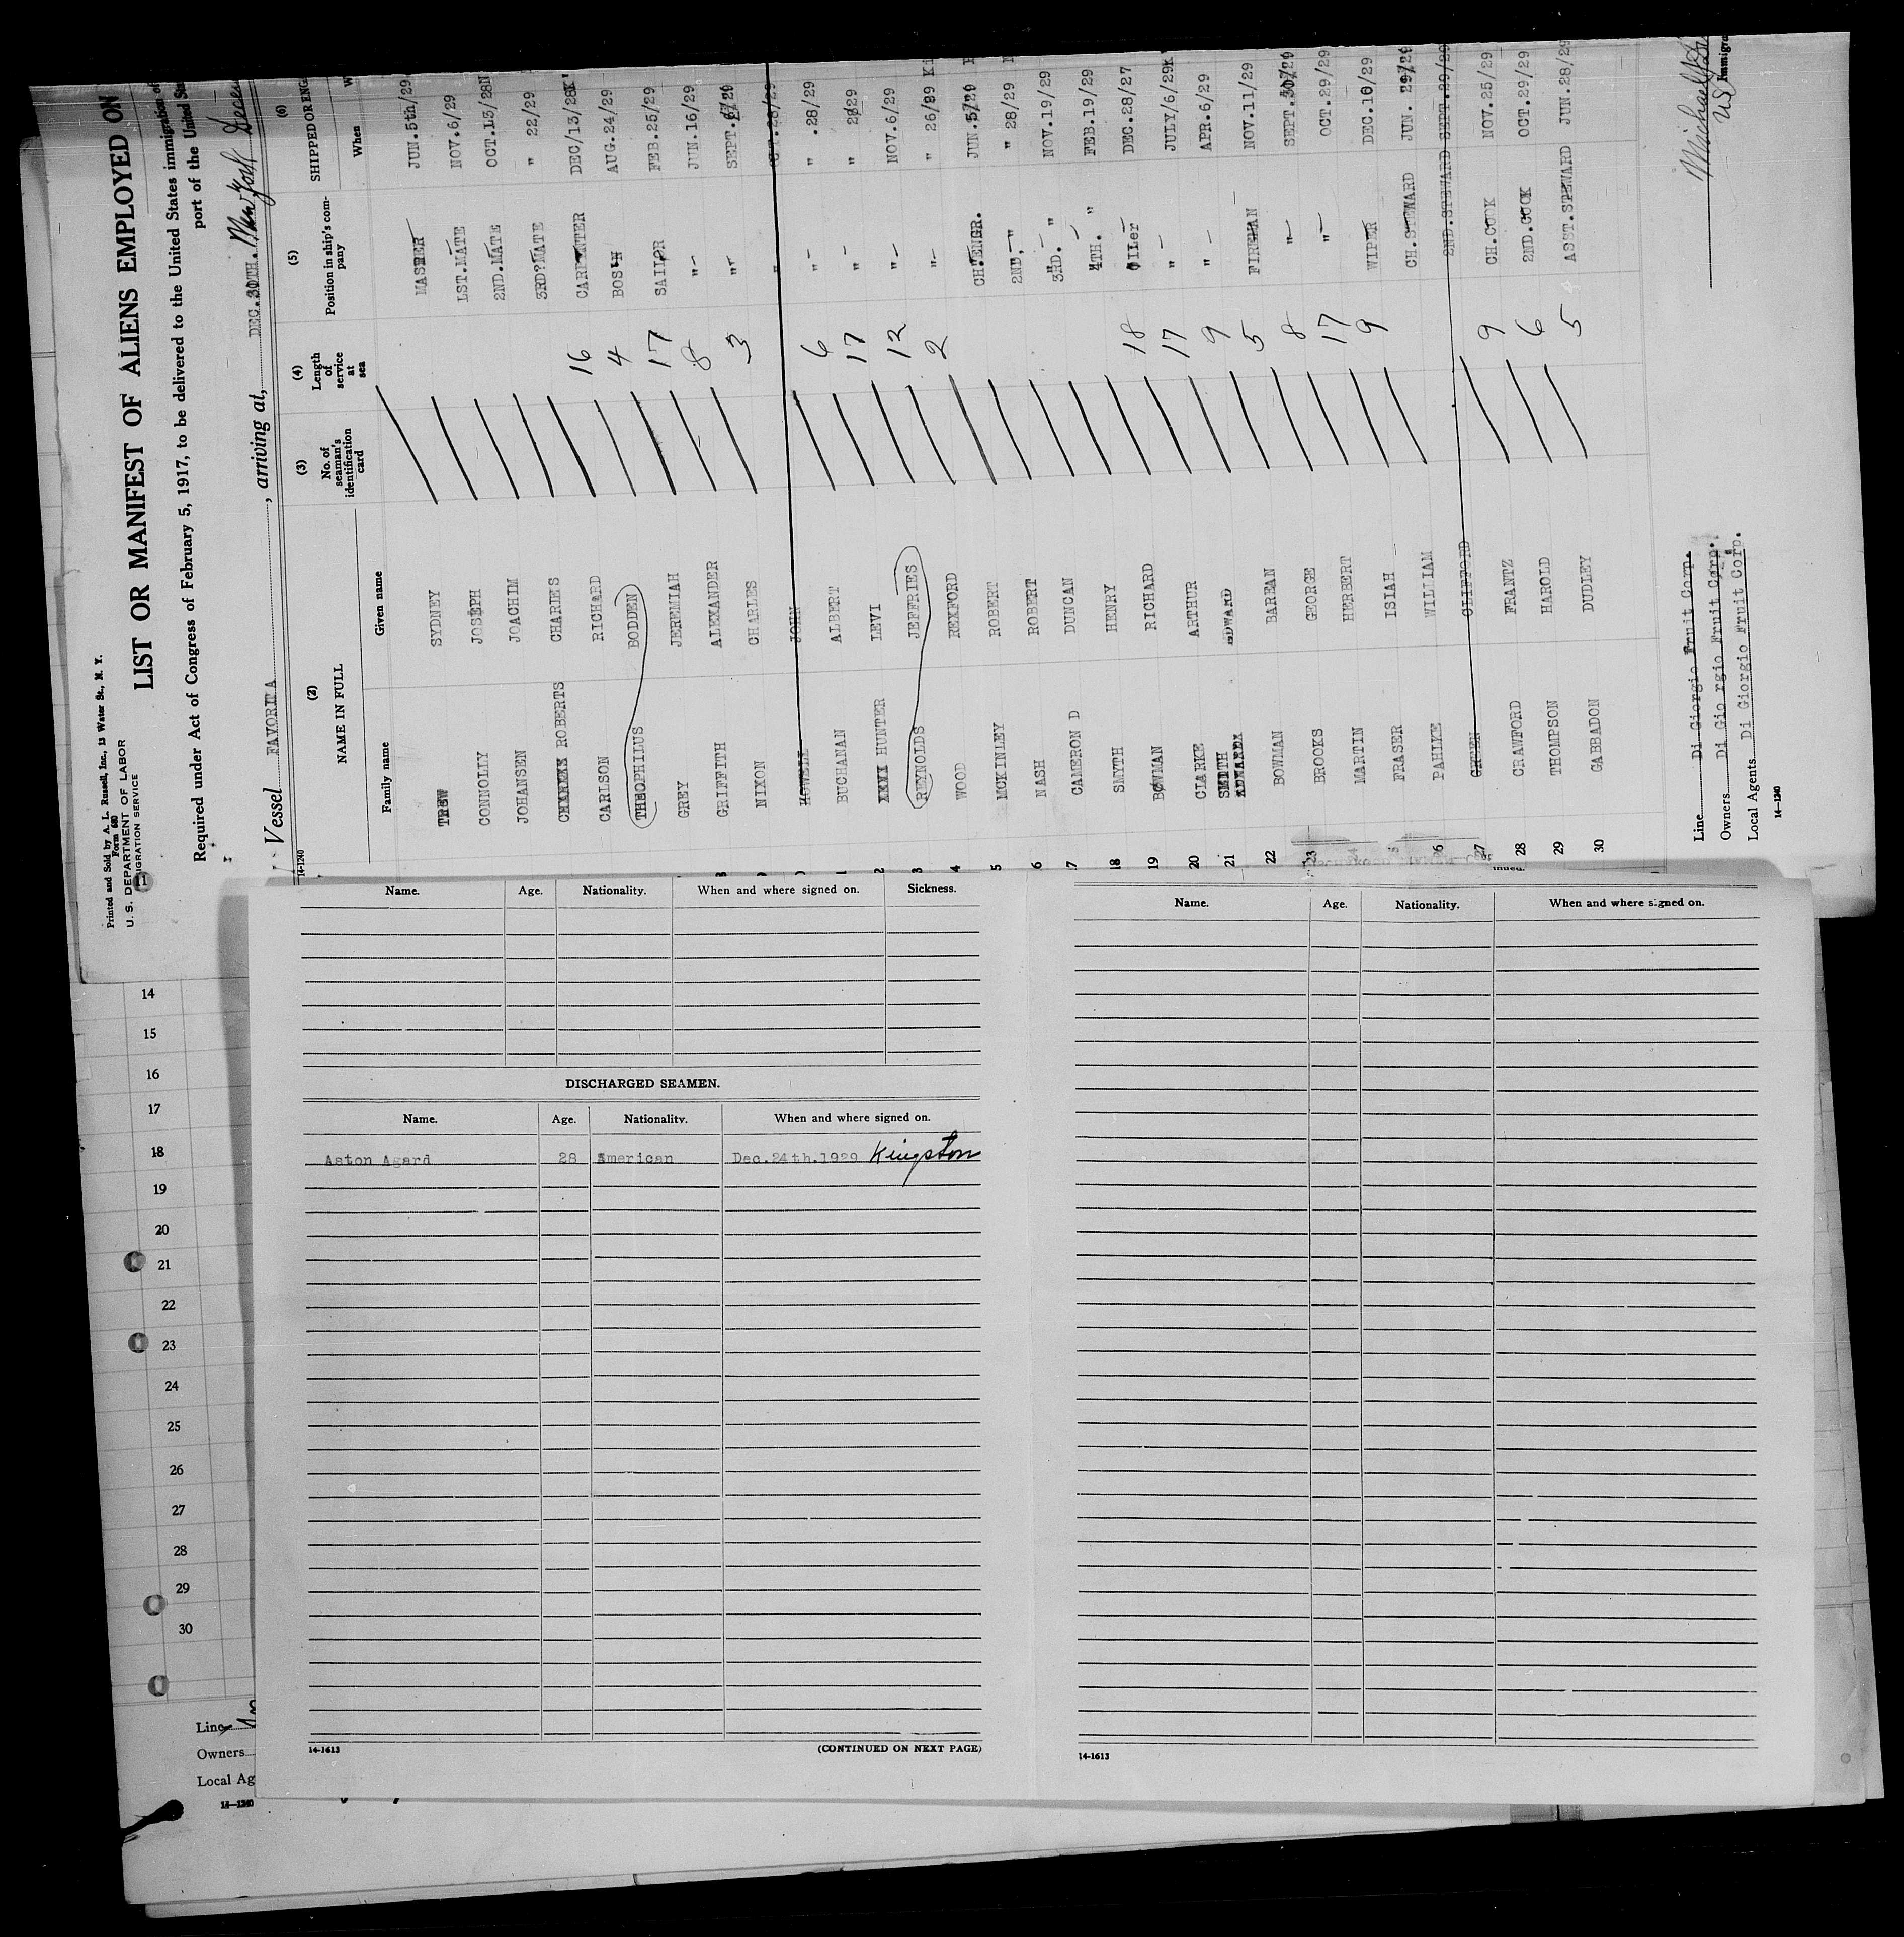 Printed and Sold by A. L. Russell, Inc., 13 Water St., N. Y.
Form 680
U. S. DEPARTMENT OF LABOR
IMMIGRATION SERVICE
LIST OR MANIFEST OF ALIENS EMPLOYED ON
Required under Act of Congress of February 5, 1917, to be delivered to the United States immigration
port of the United
Vessel FAVORITA, arriving at, DEC.30TH. New York
14-1240
(2) (3) (4) (5) (6)
NAME IN FULL No. of seaman's identification card Length of service at sea Position in ship's company SHIPPED OR ENG
Family name Given name When
TREW SYDNEY MASTER JUN.5th/29
CONNOLLY JOSEPH 1ST.MATE NOV.6/29
JOHANSEN JOACHIM 2ND.MATE OCT.13/28
ROBERTS CHARLES 3RD?MATE " 22/29
CARLSON RICHARD 16 CARPENTER DEC/13/28
THEOPHILUS BODDEN 4 BOS'N AUG.24/29
GREY JEREMIAH 17 SAILOR FEB.25/29
GRIFFITH ALEXANDER 8 "- JUN.16/29
NIXON CHARLES 3 "- SEPT.
HOWELL JOHN " 28/29
BUCHANAN ALBERT 6 "- " .28/29
HUNTER LEVI 17 "- " 28/29
REYNOLDS JEFFRIES 12 "- NOV.6/29
4 WOOD REXFORD 2 "- " 26/29 Ki
5 MCKINLEY ROBERT CH.ENGR. JUN.5/29
6 NASH ROBERT 2ND. " " 28/29
7 CAMERON D DUNCAN 3RD. " NOV.19/29
18 SMYTH HENRY 4TH. " FEB.19/29
19 BOWMAN RICHARD 18 OILer DEC.28/27
20 CLARKE ARTHUR 17 "- JULY/6/29
21 SMITH EDWARD 9 "- APR.6/29
22 BOWMAN BAREAN 5 FIREMAN NOV.11/29
23 BROOKS GEORGE 8 "- SEPT.
24 MARTIN HERBERT 17 "- OCT.29/29
FRASER ISIAH 9 WIPER DEC.10/29
26 PAHLKE WILLIAM CH.STEWARD JUN. 29/29
27 GREEN CLIFFORD 2ND.STEWARD SEPT.29/29
28 CRAWFORD FRANTZ 9 CH.COOK NOV.25/29
29 THOMPSON HAROLD 6 2ND.COOK OCT.29/29
30 GABBADON DUDLEY 5 ASST.STEWARD JUN.28/29
Line Di Giorgio Fruit Corp.
Owners Di Gio rgio Fruit Corp.
Local Agents Di Giorgio Fruit Corp.
14-1240
Immigra
Name. Age. Nationality. When and where signed on. Sickness.
DISCHARGED SEAMEN.
Name. Age. Nationality. When and where signed on.
Aston Agard 28 American Dec.24th.1929 Kingston
14-1613
(CONTINUED ON NEXT PAGE)
inued.
Name. Age. Nationality. When and where signed on.
14-1613
14
15
16
17
18
19
20
21
22
23
24
25
26
27
28
29
30
Line
Owners
Local Ag
14-1240